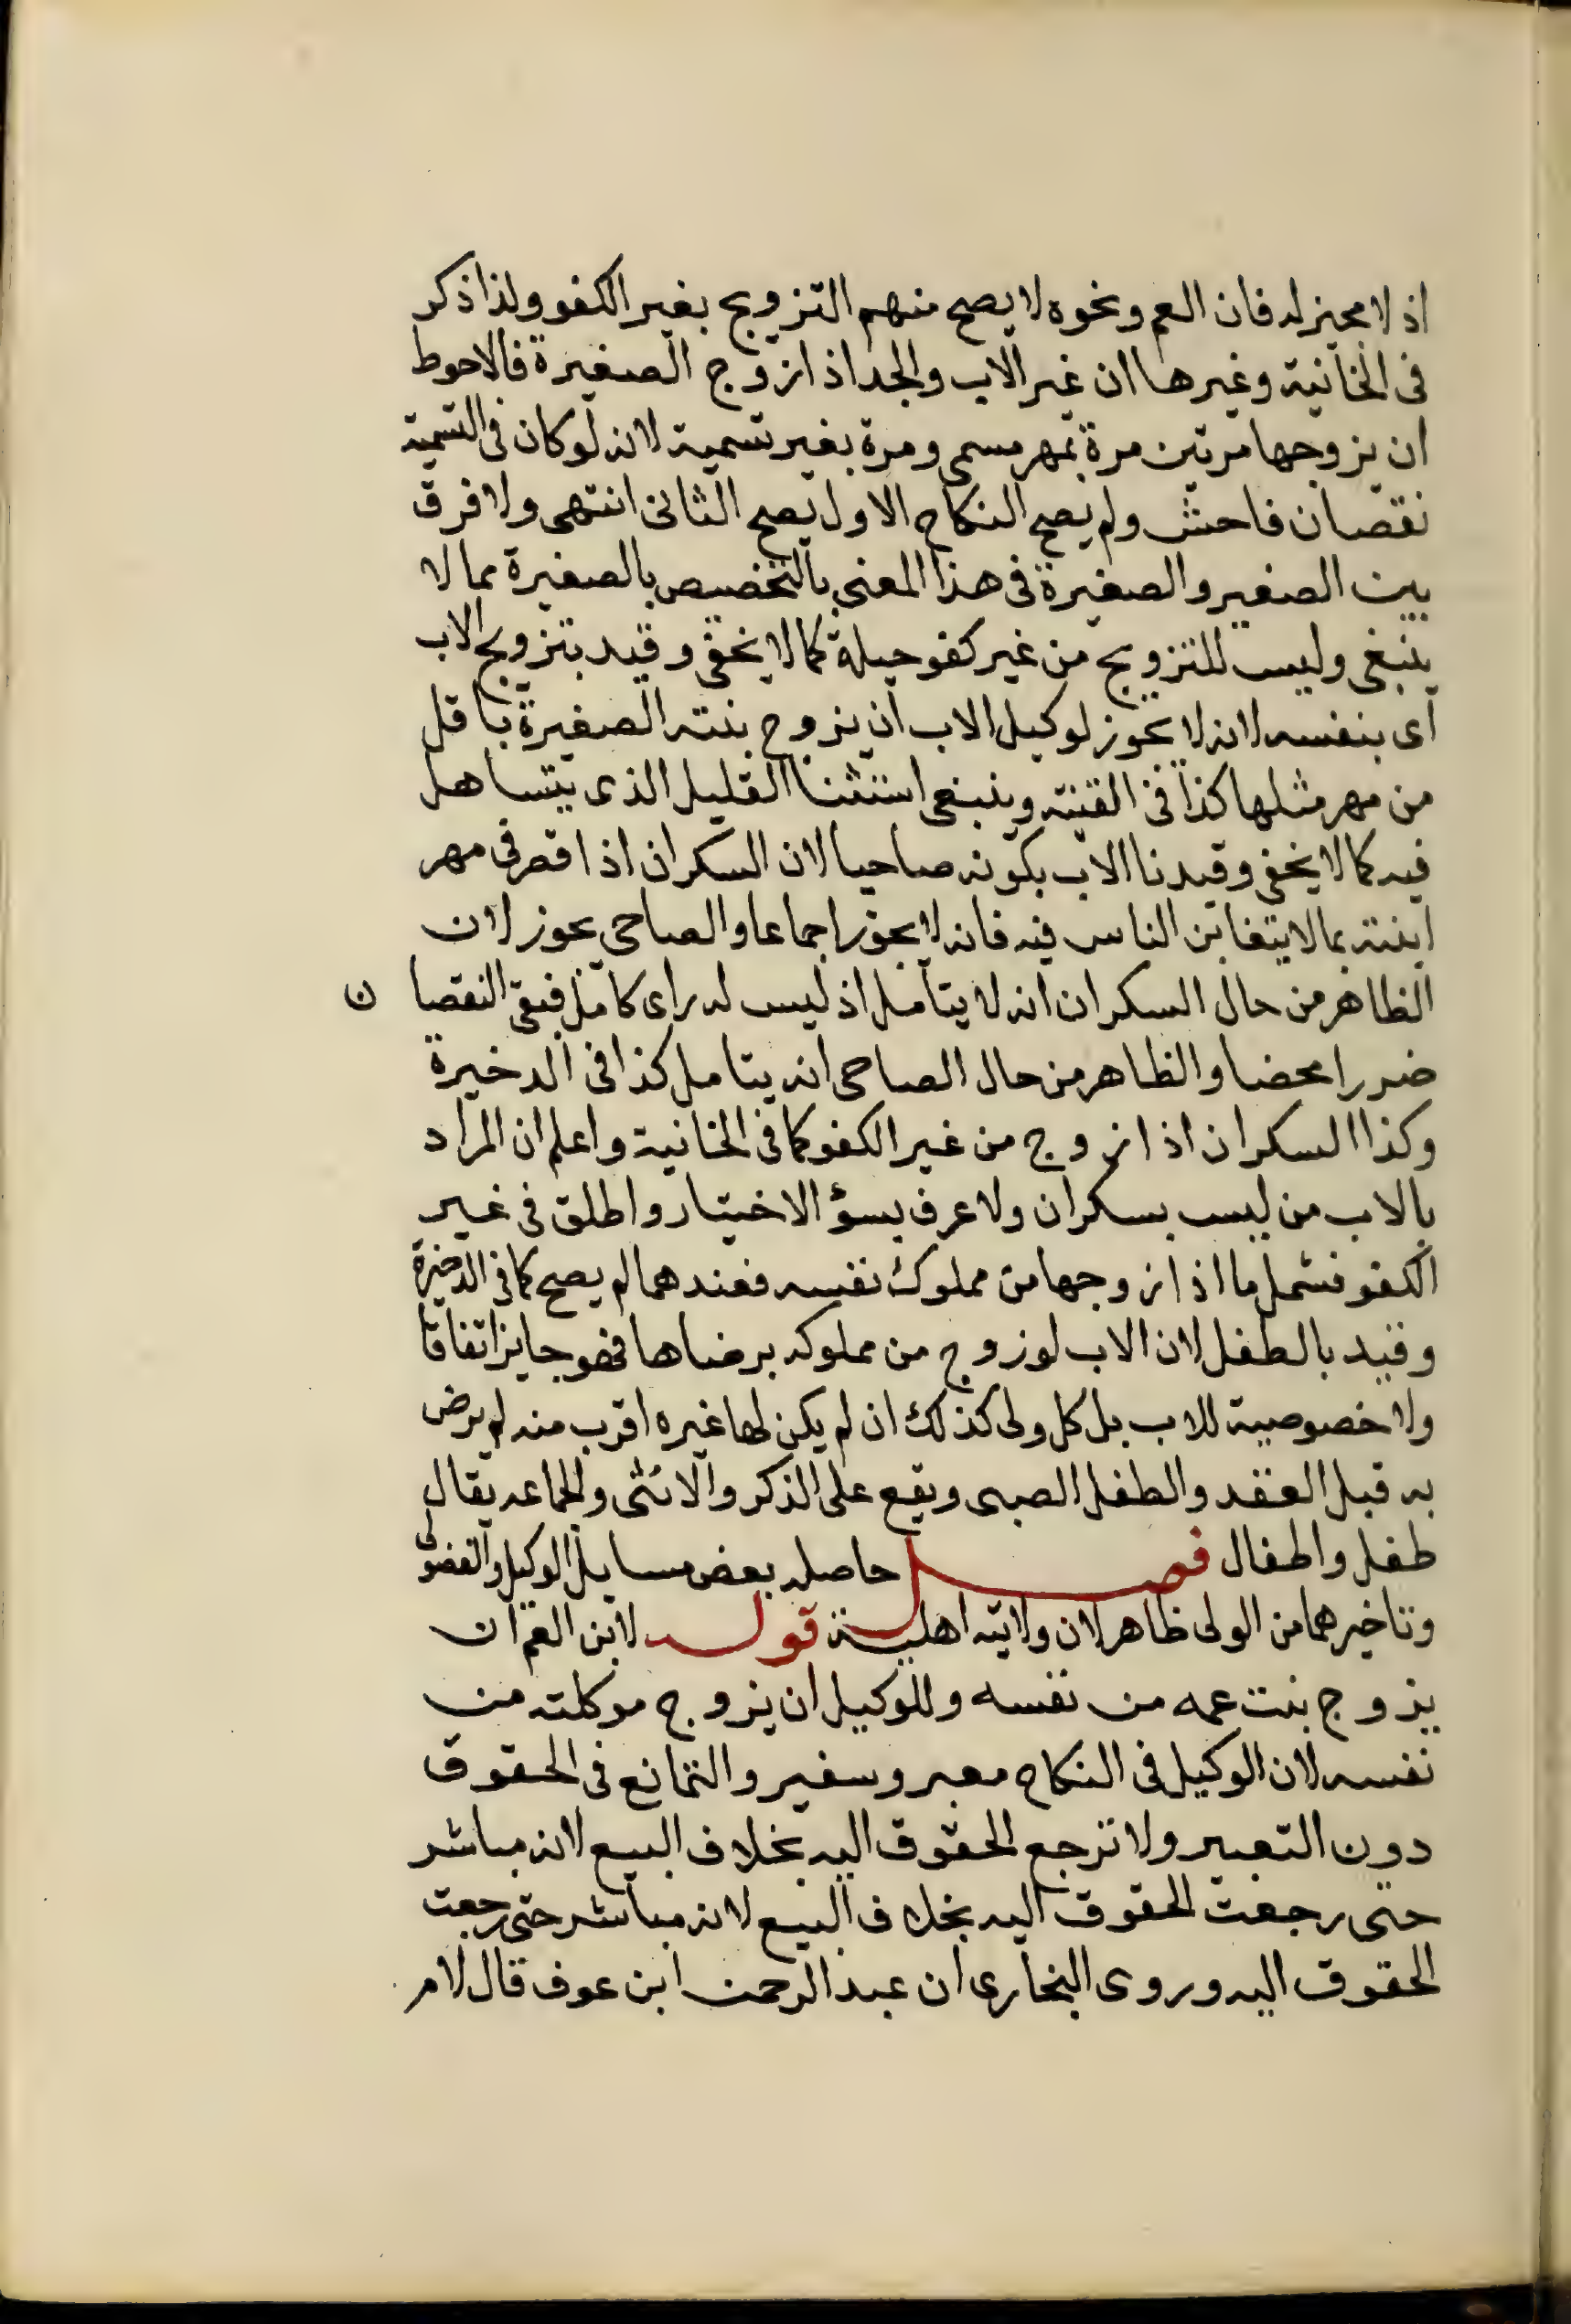 اذ لا مجيز له فان العم ونحوه لا يصح منهم التزويج بغير الكفو ولذا ذكر
فى الخانية وغيرها ان غير الاب والجد اذا زوج الصغيرة فالاحوط
ان يزوجها مرتين مرة بمهر مسمى ومرة بغير تسمية لانه لو كان فى التسمية
نقصان فاحش ولم يصح النكاح الاول يصح الثانى انتهى ولا فرق
بين الصغير والصغيرة فى هذا المعنى بالتخصيص بالصغيرة مما لا
ينبغى وليس للتزويج من غير كفو حيلة كما لا يخفى وقيد بتزويج الاب
اى بنفسه لانه لا يجوز لوكيل الاب ان يزوج بنته الصغيرة باقل
من مهر مثلها كذا فى القنية وينبغى استثنا القليل الذى يتساهل
فيه كما لا يخفى وقيدنا الاب بكونه صاحيا لان السكران اذا قصر فى مهر
ابنته بما لا يتغابن الناس فيه فانه لا يجوز اجماعا والصاحى يجوز لان
الظاهر من حال السكران انه لا يتامل اذ ليس له راى كامل فبقى النقصا ن
ضررا محضا والظاهر من حال الصاحى انه يتامل كذا فى الدخيرة
وكذا السكران اذا زوج من غير الكفو كما فى الخانية واعلم ان المراد
بالاب من ليس بسكران ولا عرف بسؤ الاختيار واطلق فى غير
الكفو فشمل ما اذا زوجها من مملوك نفسه فعندهما لم يصح كما فى الدخيرة
وقيد بالطفل لان الاب لو زوج من مملوكه برضاها فهو جايز اتفاقا
ولا خصوصية للاب بل كل ولى كذلك ان لم يكن لها غيره اقرب منه لم يرض
به قبل العقد والطفل الصبى ويقع على الذكر والانثى والجماعه يقال
طفل واطفال فصل حاصله بعض مسايل الوكيل والفضولى
وتاخيرهما من الولى ظاهر لان ولايته اهلية قوله لابن العم ان
يزوج بنت عمه من نفسه وللوكيل ان يزوج موكلته من
نفسه لان الوكيل فى النكاح معبر وسفير والتمانع فى الحقوق
دون التعبير ولا ترجع الحقوق اليه بخلاف البيع لانه مباشر
حتى رجعت الحقوق اليه بخلاف البيع لانه مباشر حتى رجعت
الحقوق اليه وروى البخارى ان عبد الرحمن ابن عوف قال لام